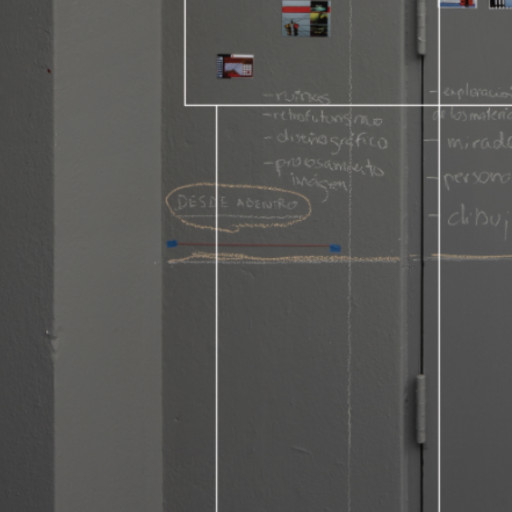 - ruinas
- retrofuturismo
- diseño gráfico
- procesamiento
imágen
DESDE ADENTRO
- exploración
de los materia
- mirada
- persona
- dibu